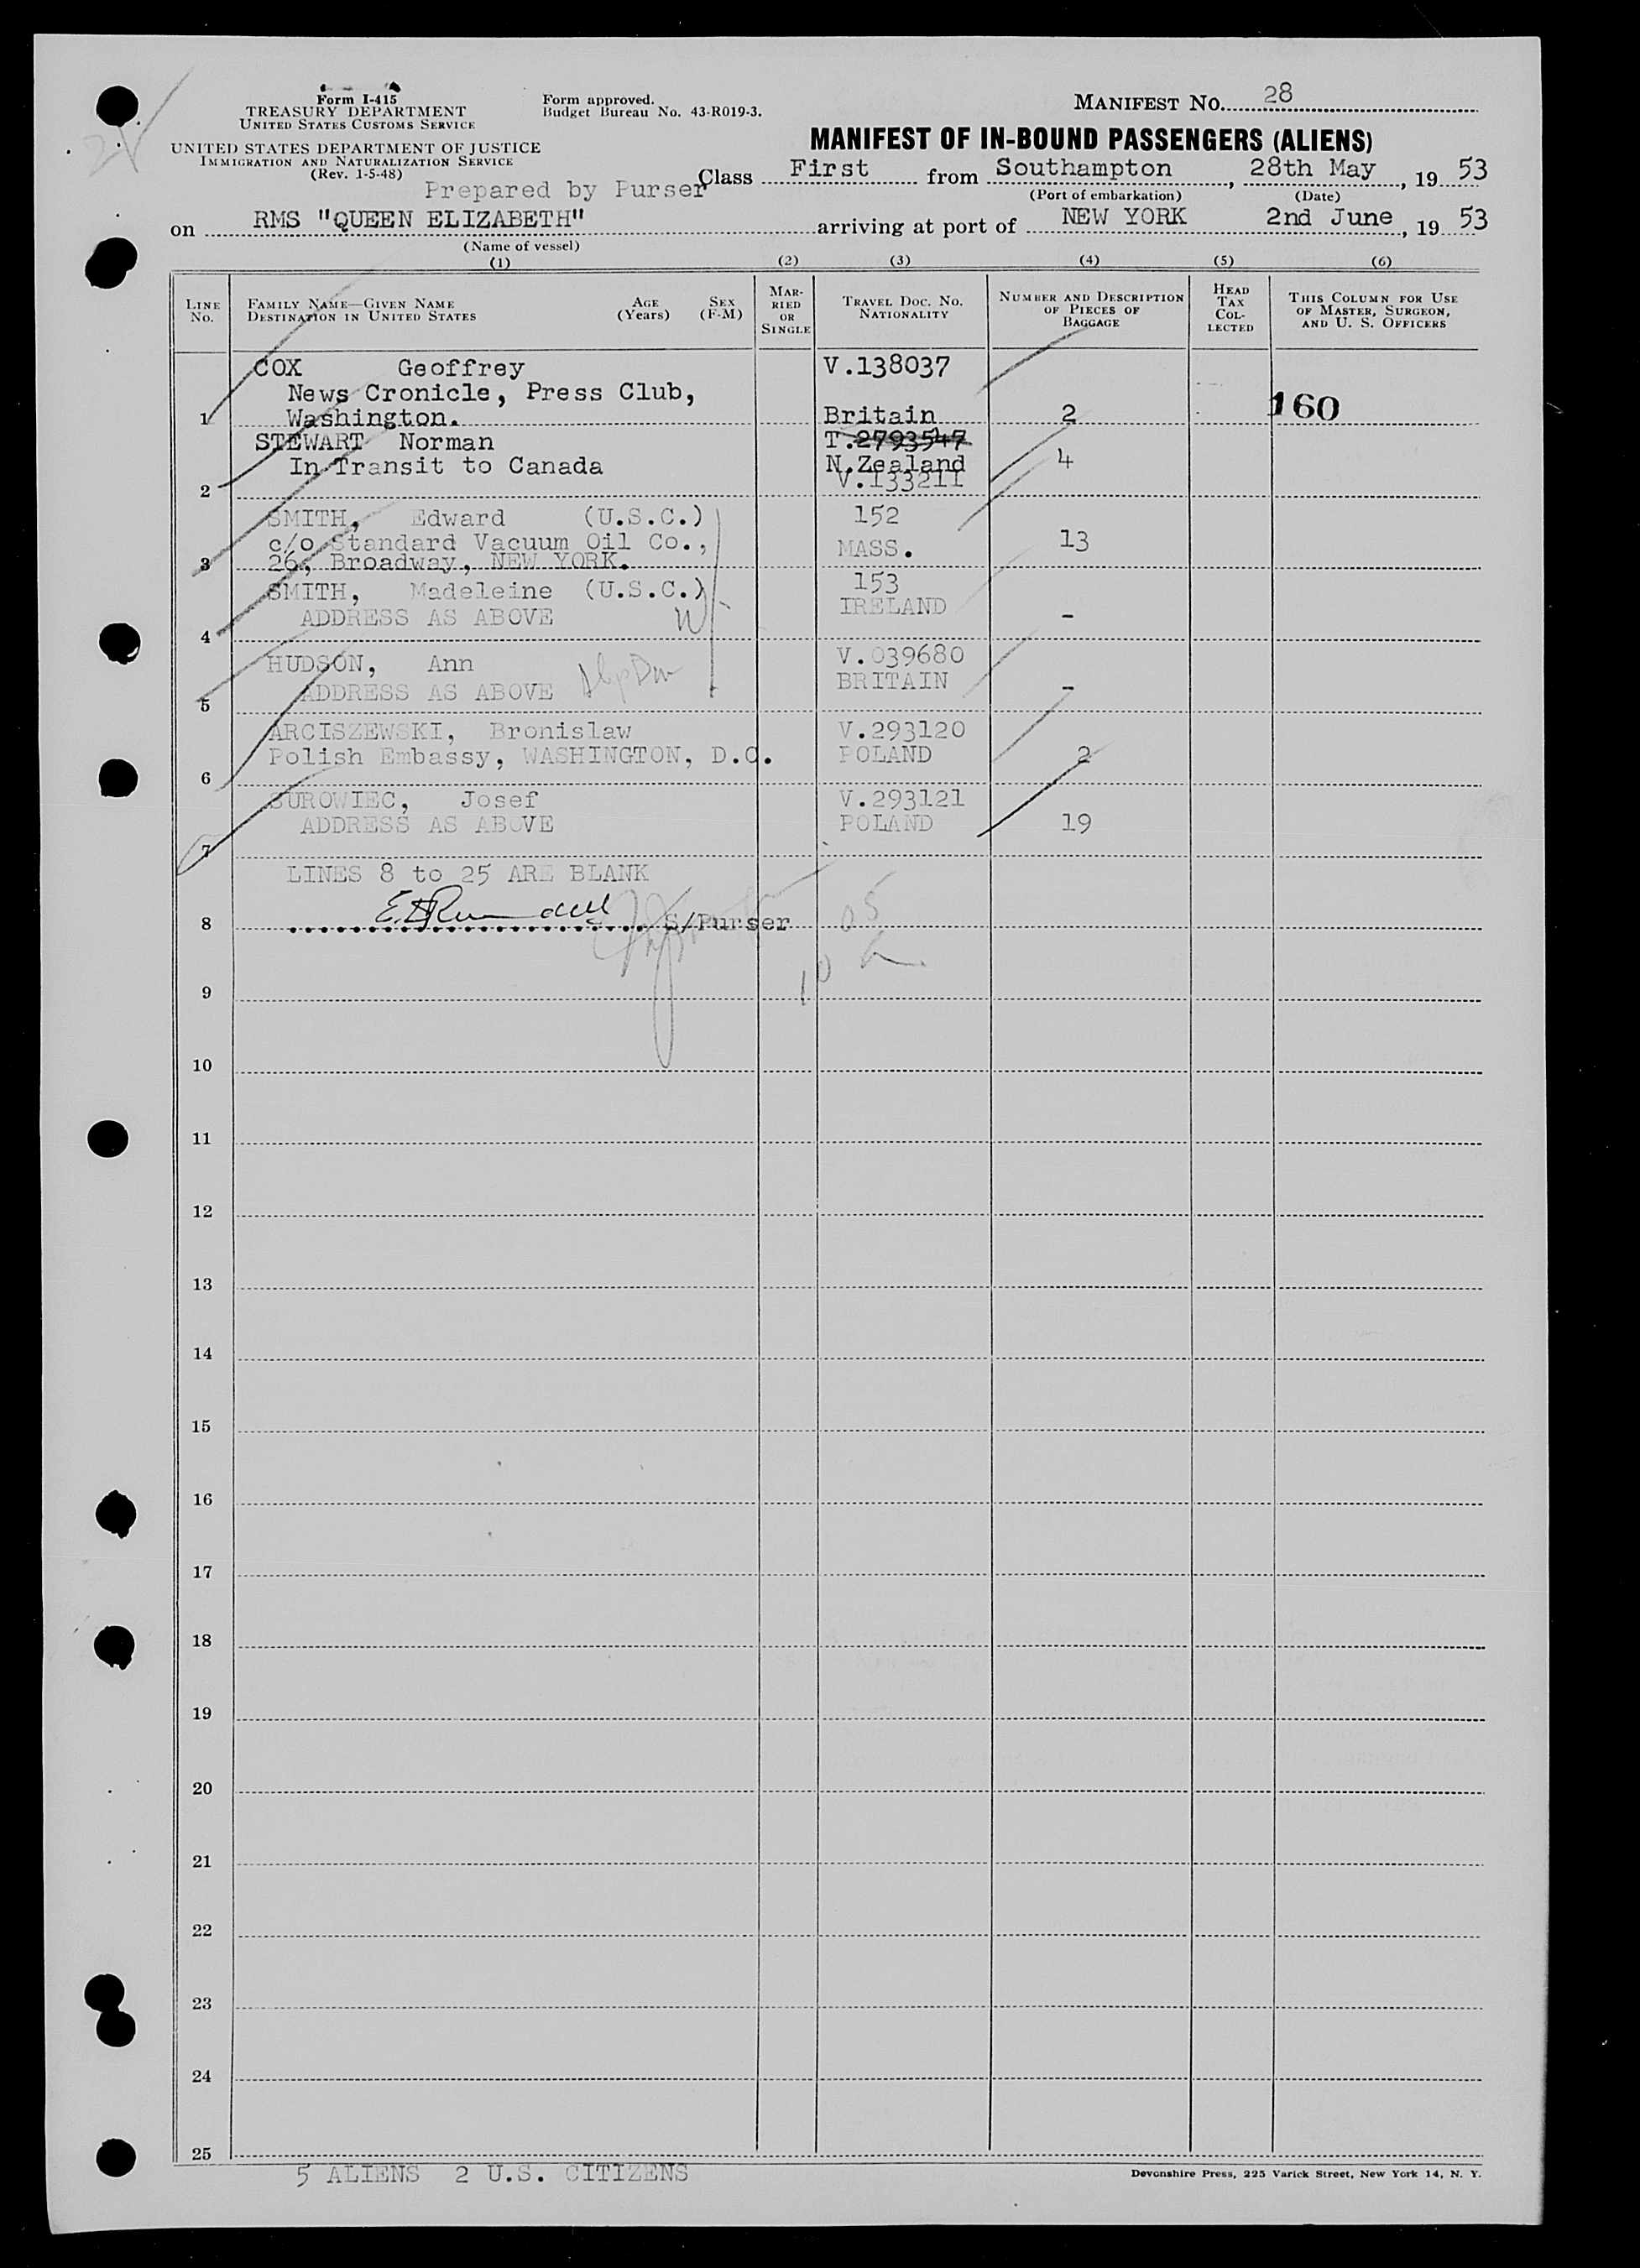 Form I-415
TREASURY DEPARTMENT
UNITED STATES CUSTOMS SERVICE
UNITED STATES DEPARTMENT OF JUSTICE
IMMIGRATION AND NATURALIZATION SERVICE
(Rev. 1-5-48)
Form approved.
Budget Bureau No. 43-R019-3.
Prepared by Purser
MANIFEST NO. 28
MANIFEST OF IN-BOUND PASSENGERS (ALIENS)
Class First from Southampton, 28th May, 19 53
(Port of embarkation) (Date)
on RMS "QUEEN ELIZABETH" arriving at port of NEW YORK 2nd June, 19 53
(Name of vessel)
(1) (2) (3) (4) (5) (6)
LINE NO.
FAMILY NAME—GIVEN NAME DESTINATION IN UNITED STATES
AGE (Years)
SEX (F-M)
MARRIED OR SINGLE
TRAVEL DOC. NO. NATIONALITY
NUMBER AND DESCRIPTION OF PIECES OF BAGGAGE
HEAD TAX COLLECTED
THIS COLUMN FOR USE OF MASTER, SURGEON, AND U. S. OFFICERS
COX Geoffrey V.138037
News Cronicle, Press Club,
1 Washington. Britain 2 160
STEWART Norman T.2793547
In Transit to Canada N.Zealand 4
2 V.133211
SMITH, Edward (U.S.C.) 152
c/o Standard Vacuum Oil Co., MASS. 13
3 26, Broadway, NEW YORK.
SMITH, Madeleine (U.S.C.) 153
ADDRESS AS ABOVE IRELAND -
4
HUDSON, Ann V.039680
ADDRESS AS ABOVE BRITAIN -
5
ARCISZEWSKI, Bronislaw V.293120
Polish Embassy, WASHINGTON, D.C. POLAND 2
6
SUROWIEC, Josef V.293121
ADDRESS AS ABOVE POLAND 19
7
LINES 8 to 25 ARE BLANK
8 S/Purser
9
10
11
12
13
14
15
16
17
18
19
20
21
22
23
24
25
5 ALIENS 2 U.S. CITIZENS
Devonshire Press, 225 Varick Street, New York 14, N. Y.